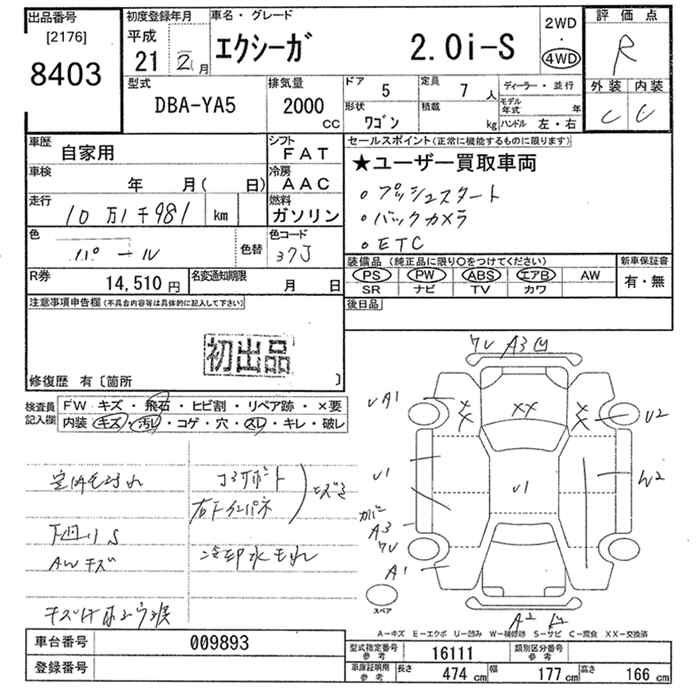 出品番号 初度登録年月 車名・グレード 2WD 評価点
[2176] 平成 ・
8403 21 2月 エクシーガ 2.0i-S 4WD R
型式 排気量 ドア 5 定員 7人 ディーラー・並行 外装 内装
DBA-YA5 2000 CC 形状 ワゴン 積載 kg モデル年式 年 C C
ハンドル 左・右
車歴 自家用 シフト FAT セールスポイント(正常に機能するものに限ります)
車検 年 月( 日) 冷房 AAC ★ユーザー買取車両
走行 10万1千981 km 燃料 ガソリン ・プッシュスタート
・バックカメラ
色 パール 色替 色コード 37J ・ETC
R券 14,510円 名変通知期限 月 日 装備品(純正品に限り○をつけてください) 新車保証書
PS PW ABS エアB AW 有・無
SR ナビ TV カワ
注意事項申告欄(不具合内容等は具体的に記入して下さい) 後日品
初出品
修復歴 有〔箇所 〕
検査員記入欄 FW キズ・飛石・ヒビ割・リペア跡・×要
内装 キズ・汚レ・コゲ・穴・スレ・キレ・破レ
ワレ A3
UA1 XX U2
U1 U1 W2
カバー A3
ワレ
A1
A2
コアサポート
下回りS
AWキズ 冷却水もれ
スペア
A-キズ E-エクボ U-凹み W-補修跡 S-サビ C-腐食 XX-交換済
車台番号 009893 型式指定番号 参考 16111 類別区分番号 参考
登録番号 車庫証明用 参考 長さ 474cm 幅 177cm 高さ 166cm